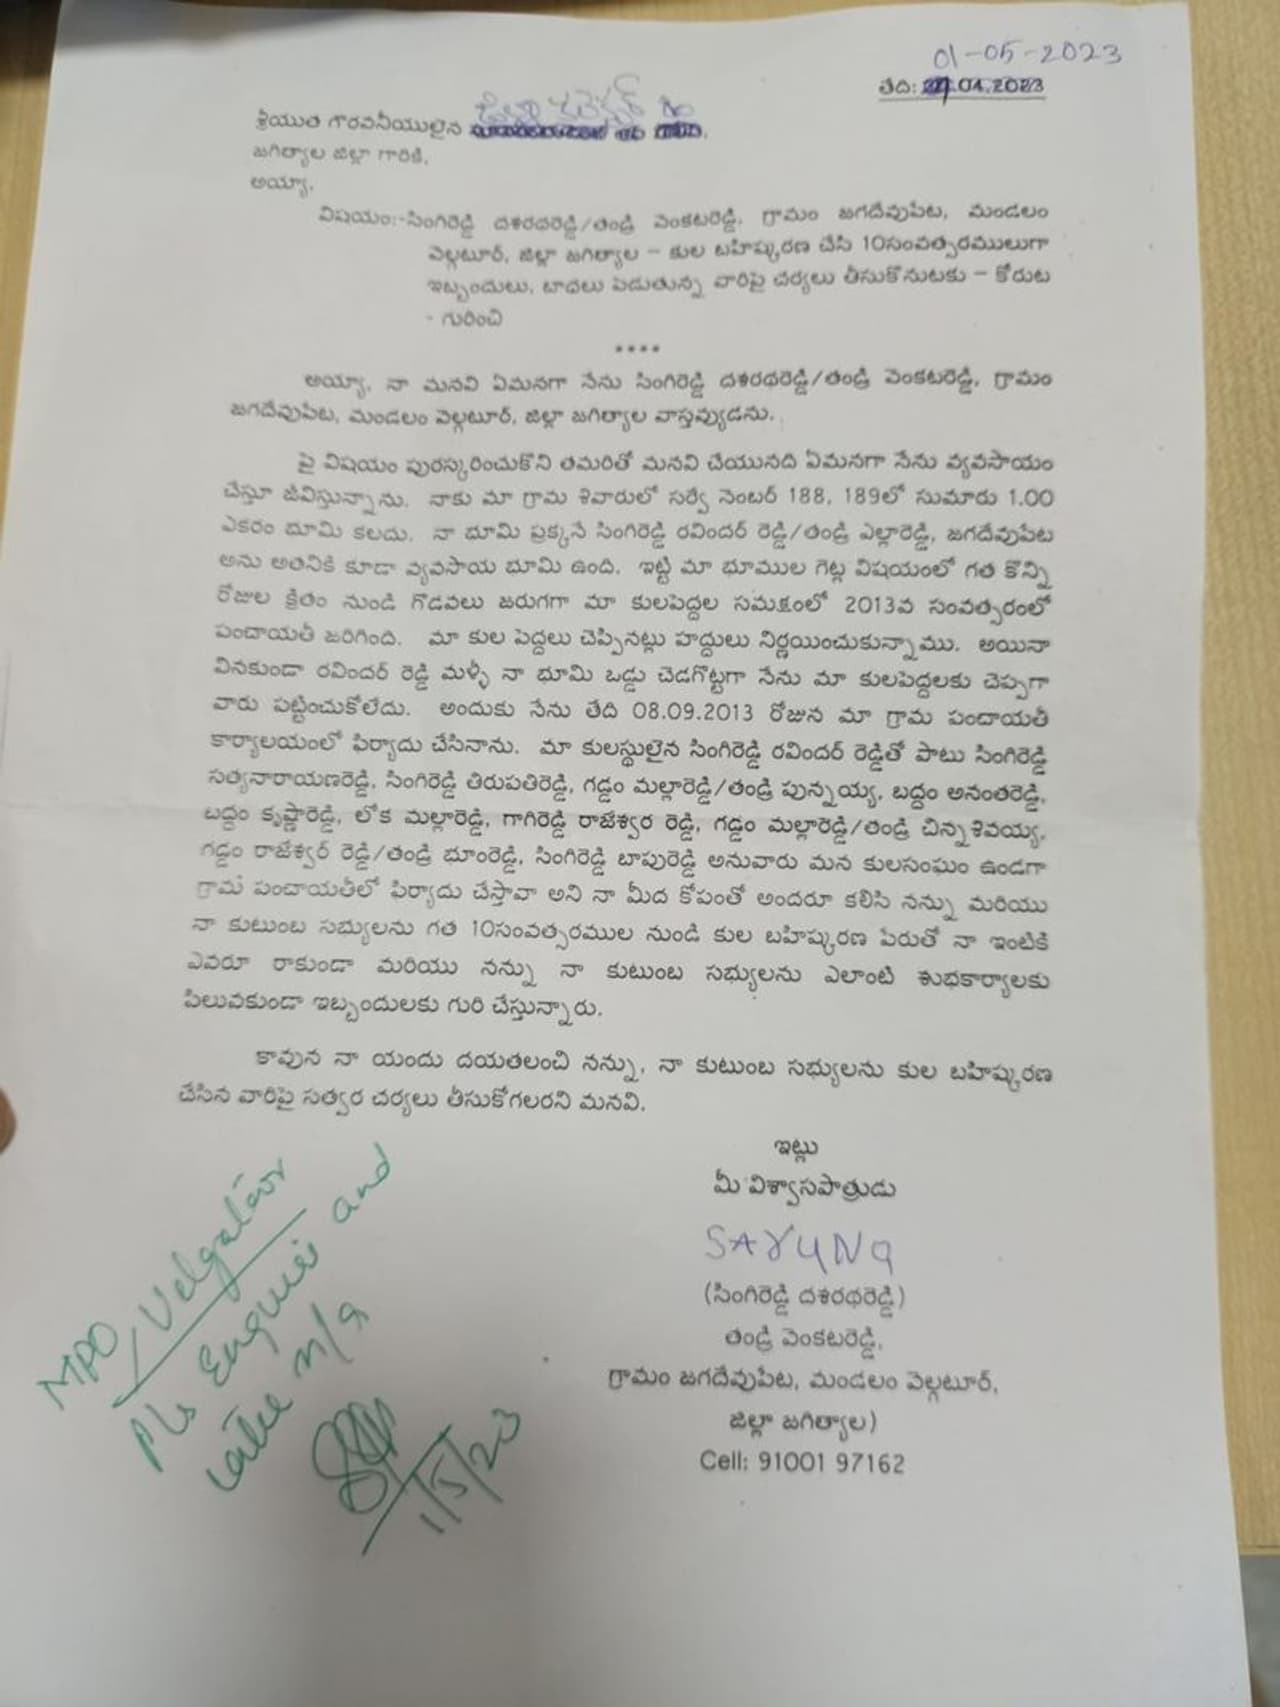 01-05-2023
తేది: .04.2023
శ్రీయుత గౌరవనీయులైన జిల్లా కలెక్టర్
జగిత్యాల జిల్లా గారికి,
అయ్యా,
విషయం:-సింగిరెడ్డి దశరథరెడ్డి/తండ్రి వెంకటరెడ్డి, గ్రామం జగదేవుపేట, మండలం
వెల్గటూర్, జిల్లా జగిత్యాల – కుల బహిష్కరణ చేసి 10సంవత్సరములుగా
ఇబ్బందులు, బాధలు పెడుతున్న వారిపై చర్యలు తీసుకొనుటకు – కోరుట
- గురించి
****
అయ్యా, నా మనవి ఏమనగా నేను సింగిరెడ్డి దశరథరెడ్డి/తండ్రి వెంకటరెడ్డి, గ్రామం
జగదేవుపేట, మండలం వెల్గటూర్, జిల్లా జగిత్యాల వాస్తవ్యుడను.
పై విషయం పురస్కరించుకొని తమరితో మనవి చేయునది ఏమనగా నేను వ్యవసాయం
చేస్తూ జీవిస్తున్నాను. నాకు మా గ్రామ శివారులో సర్వే నెంబర్ 188, 189లో సుమారు 1.00
ఎకరం భూమి కలదు. నా భూమి ప్రక్కనే సింగిరెడ్డి రవీందర్ రెడ్డి/తండ్రి ఎల్లారెడ్డి, జగదేవుపేట
అను అతనికి కూడా వ్యవసాయ భూమి ఉంది. ఇట్టి మా భూముల గెట్ల విషయంలో గత కొన్ని
రోజుల క్రితం నుండి గొడవలు జరుగగా మా కులపెద్దల సమక్షంలో 2013వ సంవత్సరంలో
పంచాయతీ జరిగింది. మా కుల పెద్దలు చెప్పినట్లు హద్దులు నిర్ణయించుకున్నాము. అయినా
వినకుండా రవిందర్ రెడ్డి మళ్ళీ నా భూమి ఒడ్డు చెడగొట్టగా నేను మా కులపెద్దలకు చెప్పగా
వారు పట్టించుకోలేదు. అందుకు నేను తేది 08.09.2013 రోజున మా గ్రామ పంచాయతీ
కార్యాలయంలో ఫిర్యాదు చేసినాను. మా కులస్థులైన సింగిరెడ్డి రవిందర్ రెడ్డితో పాటు సింగిరెడ్డి
సత్యనారాయణరెడ్డి, సింగిరెడ్డి తిరుపతిరెడ్డి, గడ్డం మల్లారెడ్డి/తండ్రి పున్నయ్య, బద్దం అనంతరెడ్డి,
బద్దం కృష్ణారెడ్డి, లోక మల్లారెడ్డి, గాగిరెడ్డి రాజేశ్వర రెడ్డి, గడ్డం మల్లారెడ్డి/తండ్రి చిన్నశివయ్య,
గడ్డం రాజేశ్వర్ రెడ్డి/తండ్రి భూంరెడ్డి, సింగిరెడ్డి బాపురెడ్డి అనువారు మన కులసంఘం ఉండగా
గ్రామ పంచాయతీలో ఫిర్యాదు చేస్తావా అని నా మీద కోపంతో అందరూ కలిసి నన్ను మరియు
నా కుటుంబ సభ్యులను గత 10సంవత్సరముల నుండి కుల బహిష్కరణ పేరుతో నా ఇంటికి
ఎవరూ రాకుండా మరియు నన్ను నా కుటుంబ సభ్యులను ఎలాంటి శుభకార్యాలకు
పిలువకుండా ఇబ్బందులకు గురి చేస్తున్నారు.
కావున నా యందు దయతలంచి నన్ను, నా కుటుంబ సభ్యులను కుల బహిష్కరణ
చేసిన వారిపై సత్వర చర్యలు తీసుకోగలరని మనవి.
ఇట్లు
మీ విశ్వాసపాత్రుడు
(సింగిరెడ్డి దశరథరెడ్డి)
తండ్రి వెంకటరెడ్డి,
గ్రామం జగదేవుపేట, మండలం వెల్గటూర్,
జిల్లా జగిత్యాల)
Cell: 91001 97162
MPO, Velgatoor
Pls Enquire and
take n/a
1/5/23